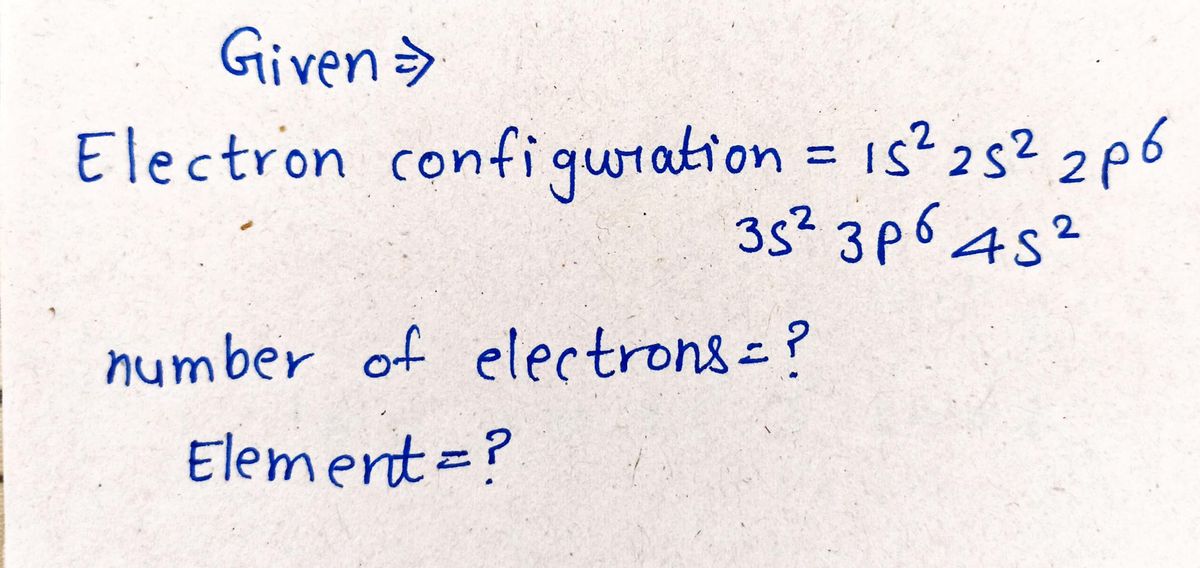 Given ⇒
Electron configuration = 1s² 2s² 2p⁶
3s² 3p⁶ 4s²
number of electrons = ?
Element = ?